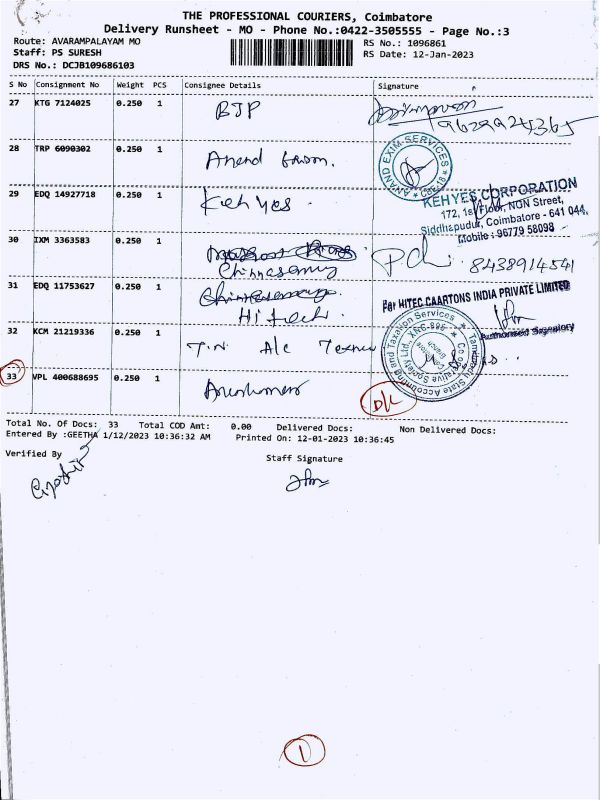 THE PROFESSIONAL COURIERS, Coimbatore
Delivery Runsheet - MO - Phone No.:0422-3505555 - Page No.:3
Route: AVARAMPALAYAM MO
RS No.: 1096861
Staff: PS SURESH
RS Date: 12-Jan-2023
DRS No.: DCJB109686103
S No Consignment No Weight PCS Consignee Details Signature
27 KTG 7124025 0.250 1 BJP
9629924365
28 TRP 6090302 0.250 1 Anand
ANAND EXIM SERVICES
29 EDQ 14927718 0.250 1 Keh yes
KEHYES CORPORATION
172, 1st Floor, NGN Street,
Siddhapudur, Coimbatore - 641 044.
Mobile : 96779 58098
30 IXM 3363583 0.250 1
Chinnasamy
8438914541
31 EDQ 11753627 0.250 1
Hi tech
For HITEC CAARTONS INDIA PRIVATE LIMITED
Authorised Signatory
32 KCM 21219336 0.250 1 T.N A/c
33 VPL 400688695 0.250 1
D/L
Total No. Of Docs: 33 Total COD Amt: 0.00 Delivered Docs: Non Delivered Docs:
Entered By :GEETHA 1/12/2023 10:36:32 AM Printed On: 12-01-2023 10:36:45
Verified By
Staff Signature
1